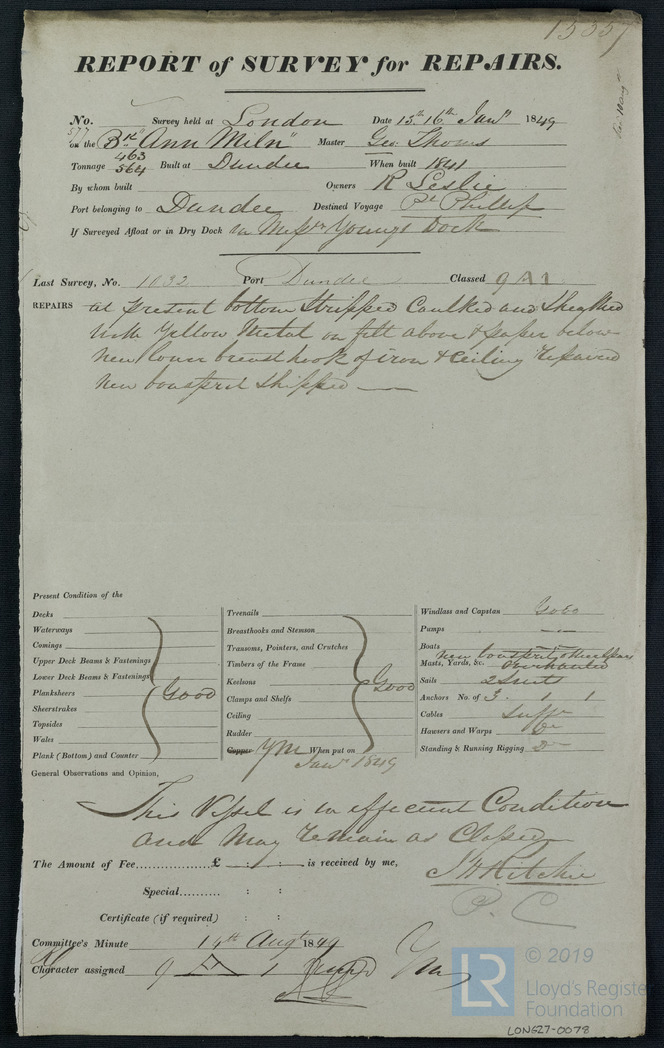 REPORT of SURVEY for REPAIRS.
No. 577 Survey held at London Date 15th 16th Jany 1849
on the Bk "Ann Miln" Master Geo. Thoms
Tonnage 463 564 Built at Dundee When built 1841
By whom built Owners R Leslie
Port belonging to Dundee Destined Voyage Pt Phillip
If Surveyed Afloat or in Dry Dock in Messrs Youngs Dock
Last Survey, No. 1032 Port Dundee Classed 9 A 1
REPAIRS at present bottom Stripped Caulked and Sheathed
with Yellow Metal on felt above & paper below
New lower breast hook of iron & Ceiling repaired
New bowsprit Shipped
Present Condition of the
Decks
Waterways
Comings
Upper Deck Beams & Fastenings
Lower Deck Beams & Fastenings
Planksheers
Sheerstrakes
Topsides
Wales
Plank (Bottom) and Counter
Good
Treenails
Breasthooks and Stemson
Transoms, Pointers, and Crutches
Timbers of the Frame
Keelsons
Clamps and Shelfs
Ceiling
Rudder
Good
Copper YM When put on
Jany 1849
Windlass and Capstan Good
Pumps
Boats
New bowsprit other Spars
Masts, Yards, &c. Overhauled
Sails 2 Suits
Anchors No. of 3 1 1
Cables Sufft
Hawsers and Warps Do
Standing & Running Rigging Do
General Observations and Opinion,
This Vessel is in effecient Condition
and May remain as Classed
The Amount of Fee £ : : is received by me,
J H Ritchie
Special : :
P. C
Certificate (if required) : :
Committee's Minute 14th Augt 1849
Character assigned 9 A 1 YM
LR © 2019
Lloyd's Register
Foundation
LON627-0078